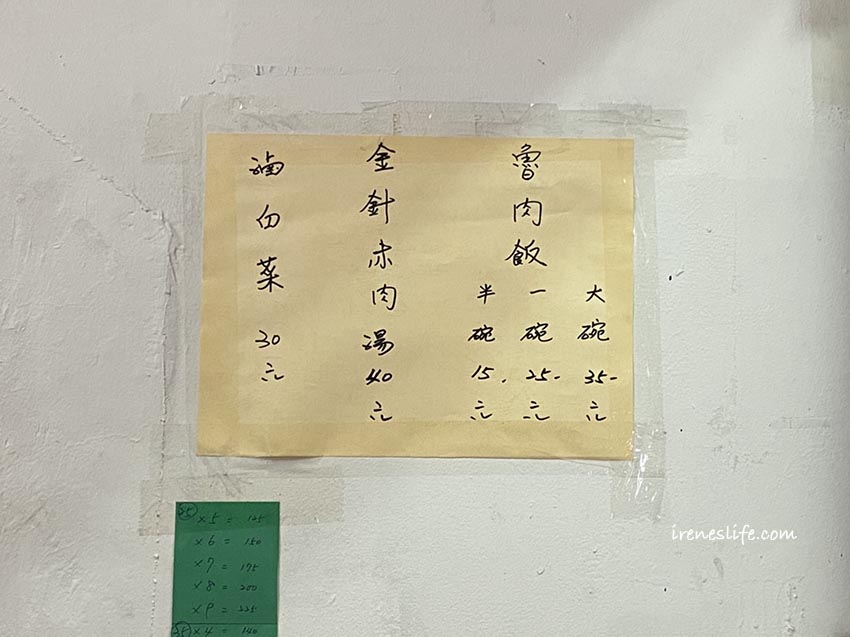 魯肉飯
大碗35-元
一碗25-元
半碗15.元
金針赤肉湯40元
滷白菜30元
25×5=125
×6=150
×7=175
×8=200
×9=225
35×4=140
ireneslife.com